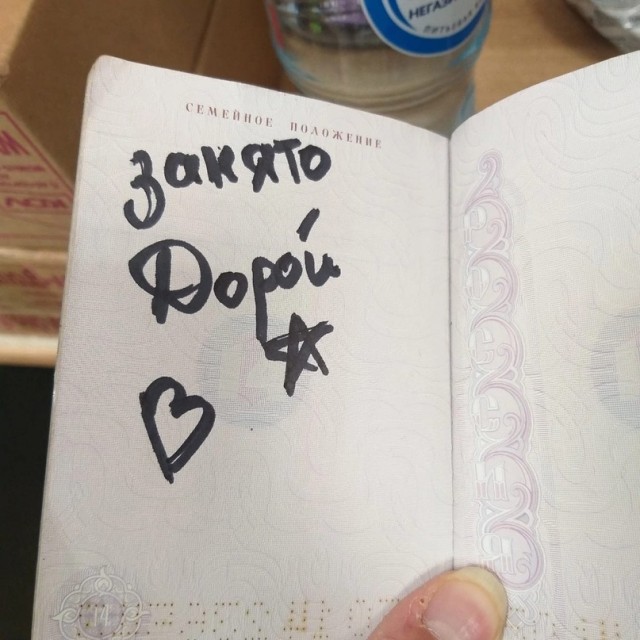 НЕГАЗИ
ПИТЬЕВАЯ
СЕМЕЙНОЕ ПОЛОЖЕНИЕ
занято
Дорой